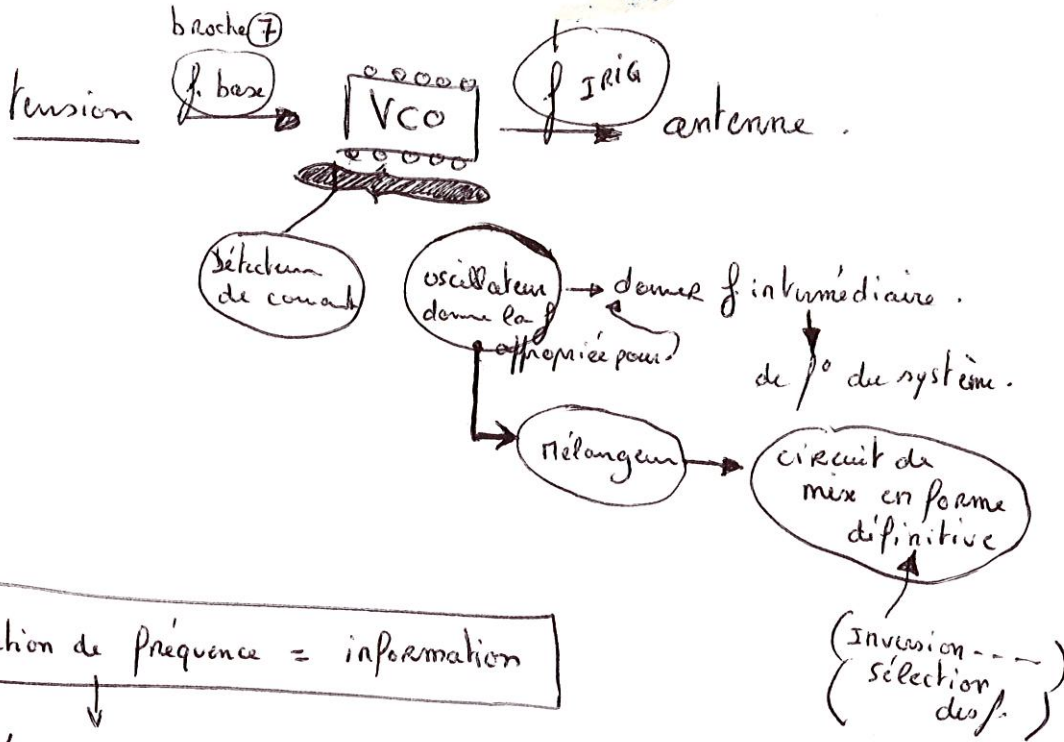 broche ⑦
tension
f. base
VCO
f IRIG
antenne.
Détecteur
de courant
oscillateur
donne la f
appropriée pour
donner f. intermédiaire.
de f° du système.
Mélangeur
circuit de
mise en forme
définitive
(Inversion----)
(sélection
des f.)
tion de fréquence = information